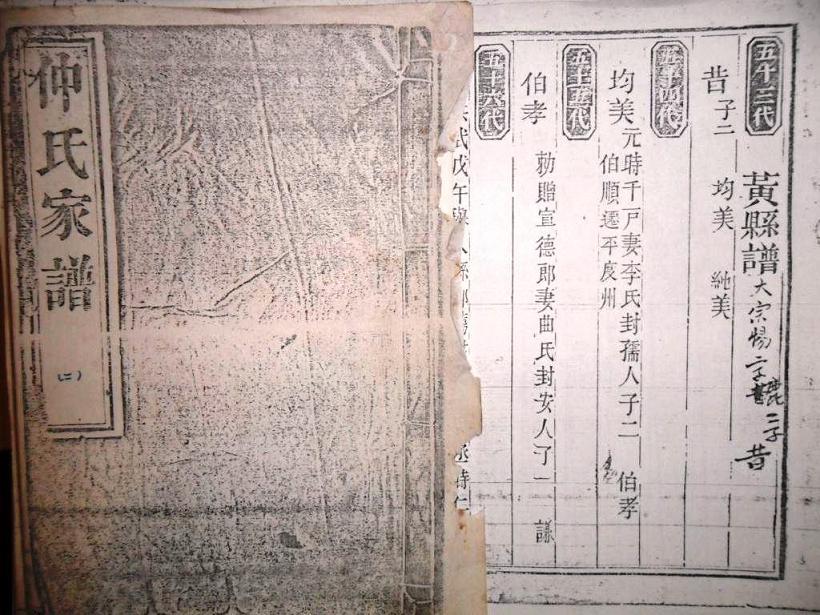 五十三代
黃縣譜
大宗惕
二子
昔
昔 子二
均美 純美
五十四代
均美 元時千戶妻李氏封孺人子二 伯孝
伯順遷平度州
五十五代
伯孝
勅贈宣德郎妻曲氏封安人子一 謙
五十六代
武戊午舉人
仲氏家譜
(二)